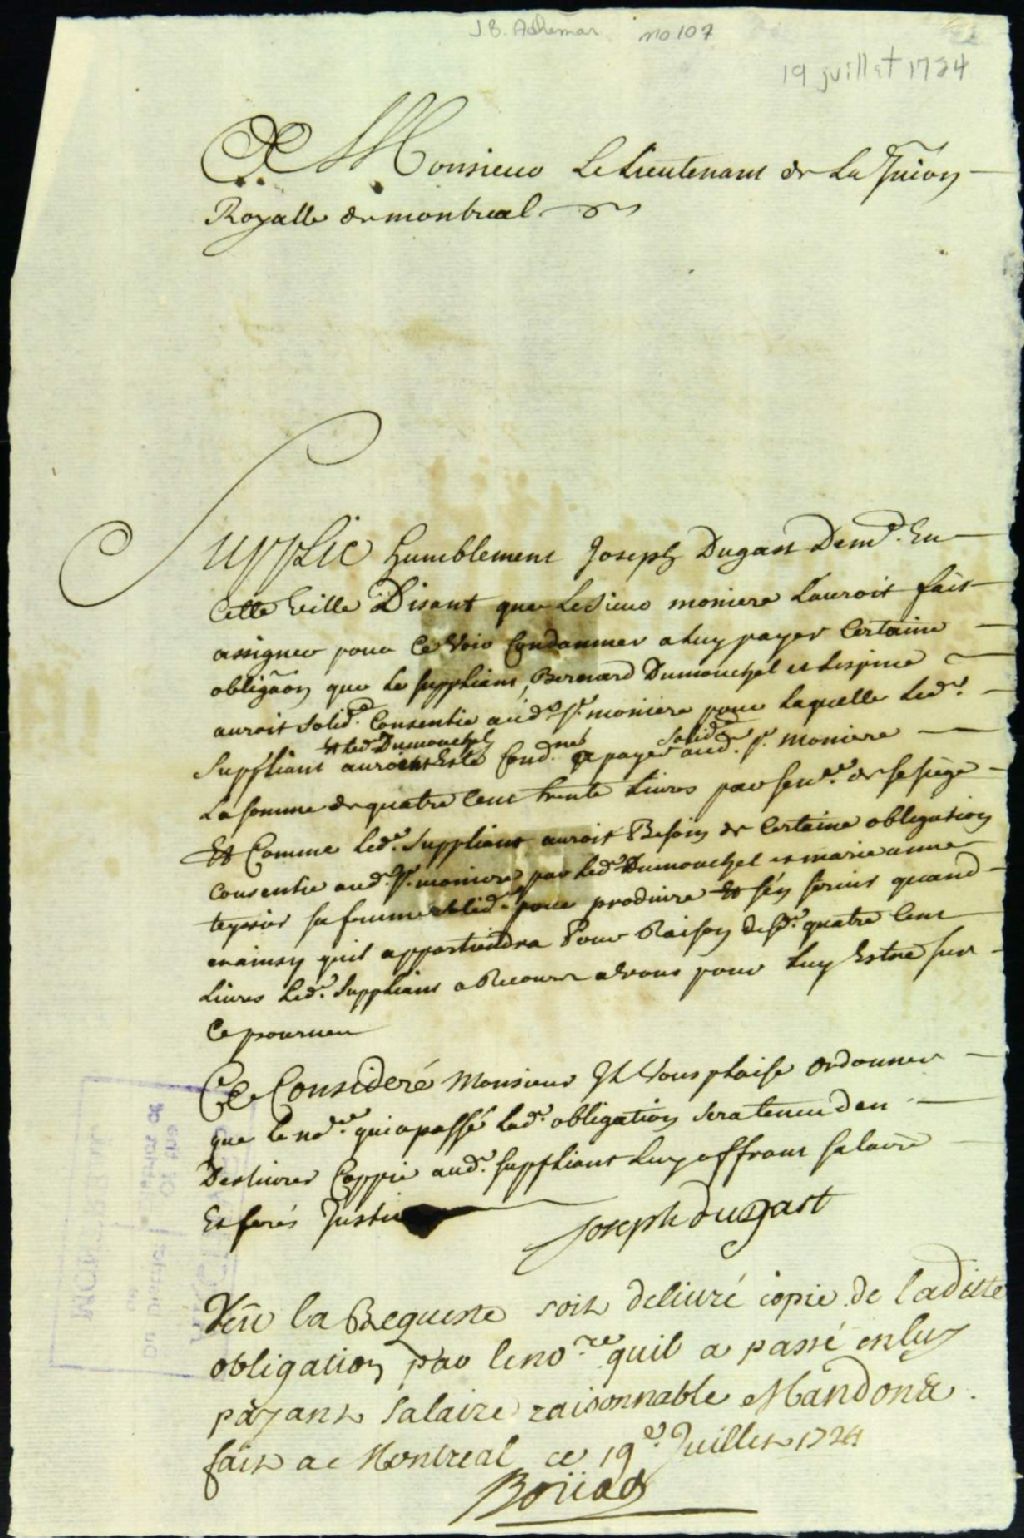 J B. Adhemar no 107
19 juillet 1724
A Monsieur Le Lieutenant de La Jurion
Royalle de montreal
Supplie humblement Joseph Dugast Demt. En
Cette Ville Disant que Le Sieur moniere L'auroit fait
assigner pour Ce Voir Condamner a Luy payer Certaine
obligãon que Le suppliant, Bernard Dumouchel et Lespine
auroit solide. Consentie aude. Sr. moniere pour Laquelle Ledt.
Et led Dumouchel solide
Suppliant auroient Esté Condnés a payer aud. Sr. moniere
La somme de quatre Cent trente Livres par sence. de se siège
Et Comme Led. Suppliant auroit Besoin de Certaine obligation
Consentie aud. Sr. moniere par Led. Dumouchel et marie anne
tessier sa femme solid. pour produire Et s'en servir quand
et ainsy quil appartiendra Pour Raison desd. quatre Cent
Livres Led. Suppliant a Recours a Vous pour Luy Estre sur
Ce pourveu
Ce Consideré Monsieur Il Vous plaise ordonner
que le nore. qui a passé Lad. obligation sera tenu den
Deslivrer Coppie aud. suppliant Luy offrant salaire
Et ferés Justi
Joseph dugast
Veu la Requeste soit delivré copie de laditte
obligation par le nore quil a passé en luy
payant salaire raisonnable Mandons &
fait a Montreal ce 19e. Juillet 1724
Boüat